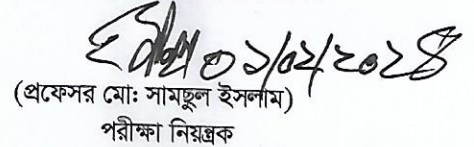 ০১/০২/২০২৪
(প্রফেসর মো: সামছুল ইসলাম)
পরীক্ষা নিয়ন্ত্রক